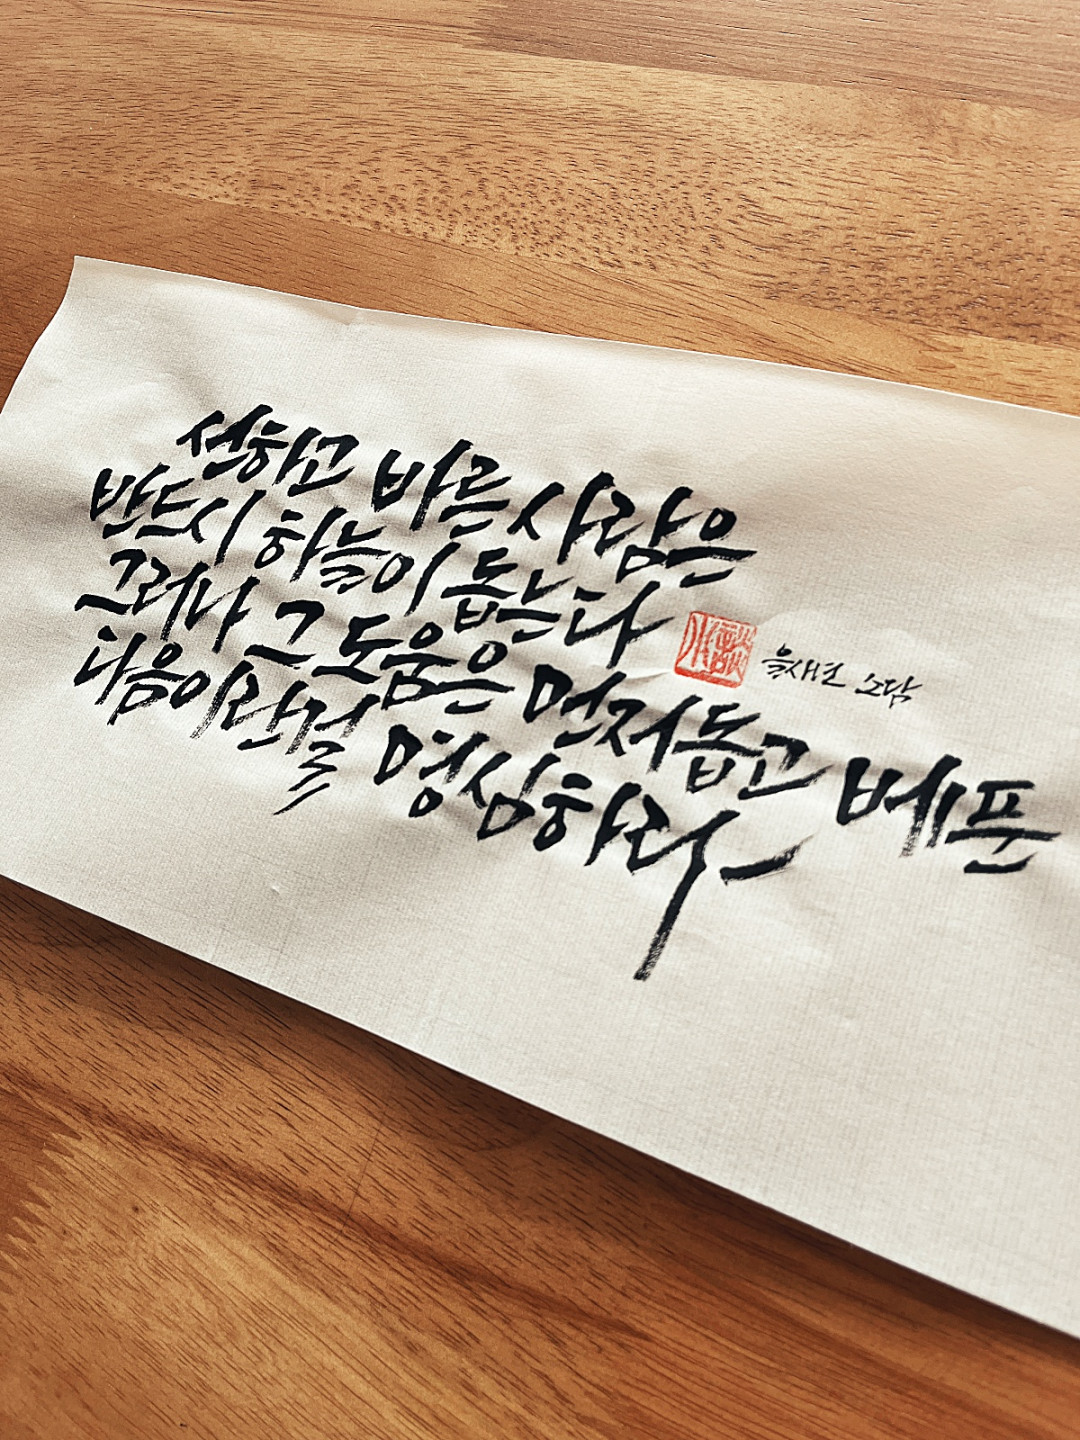 선하고 바른 사람은
반드시 하늘이 돕는다
그러나 그 도움은 먼저 돕고 베푼
다음이란걸 명심하라
소담